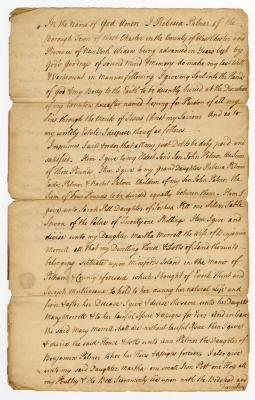 In the Name of God Amen I Rebecca Palmer of the
Borough Town of West Chester in the County of Westchester and
Province of New York Widow being advanced in Years but by
God's Goodness of sound Mind & Memory do make this my last Will
& Testament in manner following I give my Soul into the Hands
of God & my Body to the Earth to be decently buried at the Discretion
of my Executors hereafter named hoping for Pardon of all my
Sins through the Merits of Jesus Christ my Saviour And as to
my worldly Estate I dispose thereof as follows
Imprimis I will & order that all my just Debts be duly paid and
satisfied. Item I give to my Eldest Son's Son John Palmer the Sum
of three Pounds Item I give to my Grand Daughters Palmer
Palmer & Rachel Palmer Children of my Son John Palmer the
Sum of four Pounds to be divided equally between them Item I
give unto Sarah Pell Daughter of Joshua Pell one silver Table
Spoon of the Value of Twenty one Shillings Item I give and
devise unto my Daughter Martha Morrell the Wife of
Morrell all that my Dwelling House & Lotts of Land thereunto
belonging situate upon Minefords Island in the Manor of
Pelham & County aforesaid which I bought of Caleb Hunt and
Joseph to hold to her during her natural Life and
from & after her Decease I give & devise the same unto her Daughter
Mary Morrell & to her lawful Heirs & Assigns for Ever And in Case
the said Mary Morrell shall die without lawful Heirs then I give
& devise the said House & Lots unto Ann Palmer the Daughter of
Benjamin Palmer to her & her Heirs & Assigns forever I also give
unto my said Daughter Martha one small Iron Pott one Hog all
my Poultry & the Bed I commonly lie upon with the Bedstead and